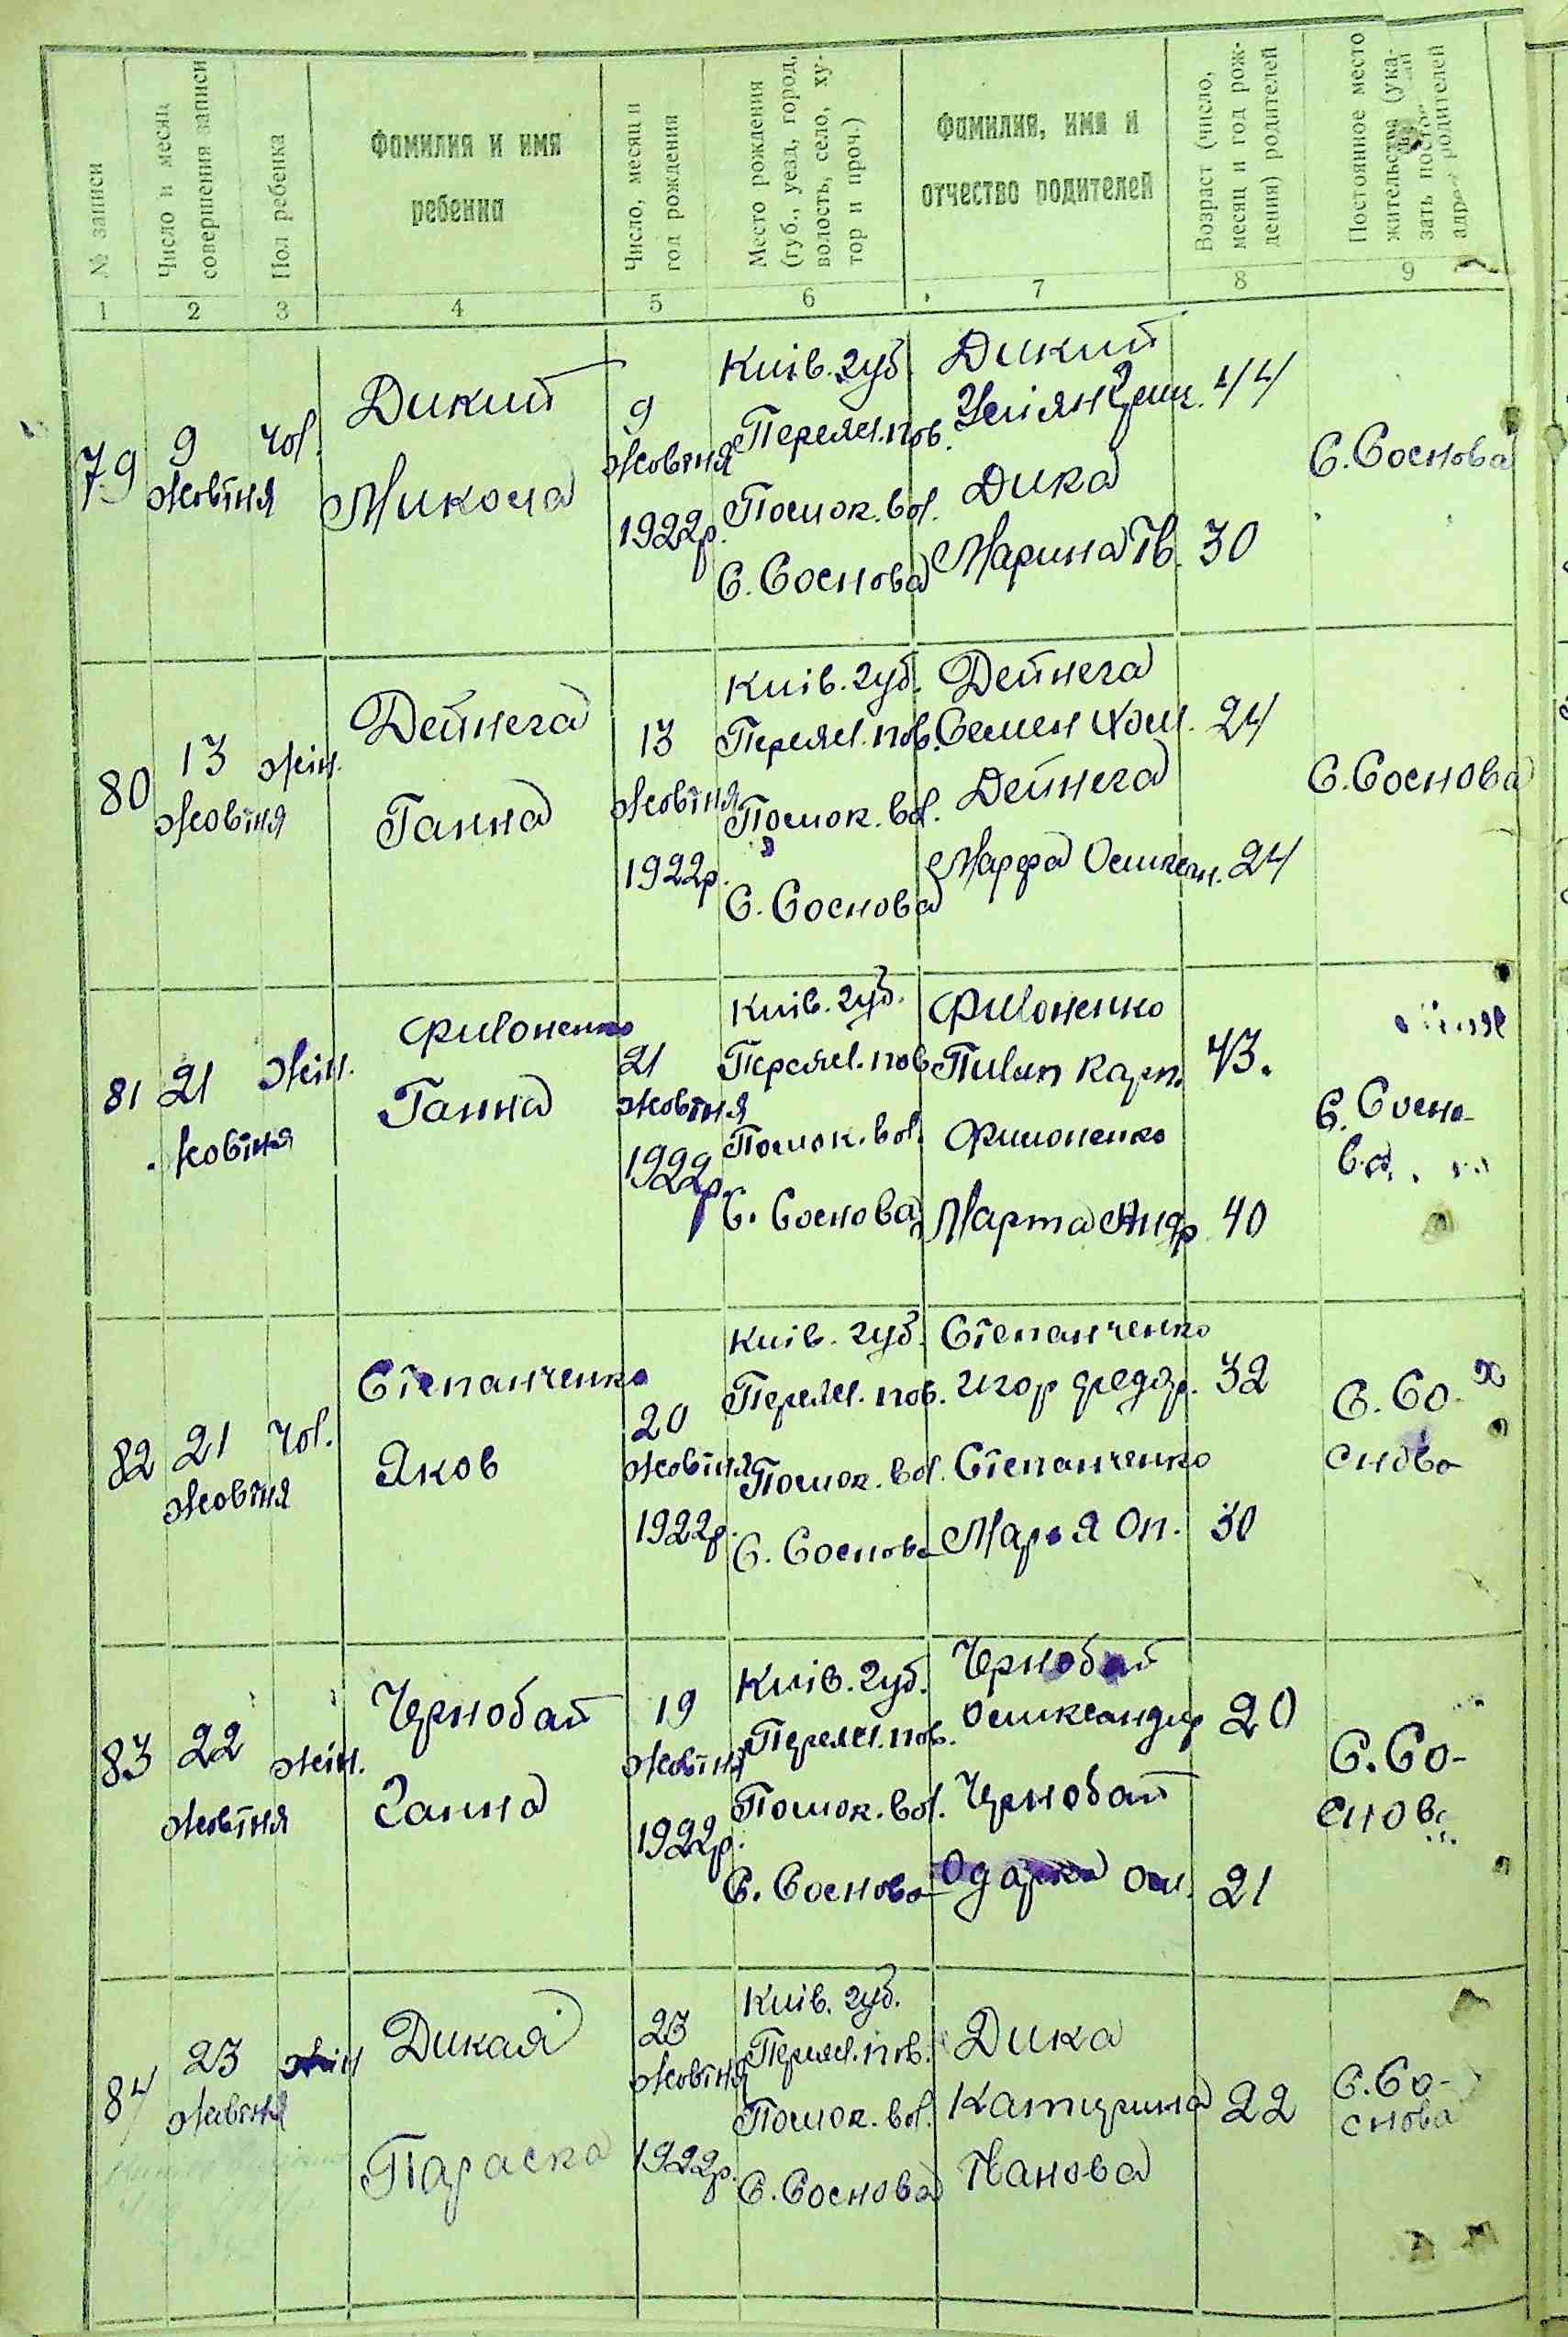 № записи
Число и месяц совершения записи
Пол ребенка
Фамилия и имя
ребенка
Число, месяц и
год рождения
Место рождения
(губ., уезд, город,
волость, село, ху-
тор и проч.)
Фамилия, имя и
отчество родителей
Возраст (число,
месяц и год рож-
дения) родителей
Постоянное место
жительства (ука-
зать
родителей
1 2 3 4 5 6 7 8 9
79
9
жовтня
чол.
Дикий
Микола
9
жовтня
1922р.
Київ. губ.
Переясл. пов.
Помок. вол.
С. Соснова
Дикий
44
Дика
Марина Ів. 30
С. Соснова
80
13
жовтня
жін.
Дейнега
Ганна
13
жовтня
1922р.
Київ. губ.
Переясл. пов.
Помок. вол.
С. Соснова
Дейнега
Семен Хом. 24
Дейнега
Марфа 24
С. Соснова
81
21
жовтня
жін.
Филоненко
Ганна
21
жовтня
1922р.
Київ. губ.
Переясл. пов.
Помок. вол.
С. Соснова
Филоненко
Пилип Карп. 43.
Филоненко
Марта Андр. 40
С. Сосно-
ва
82
21
жовтня
чол.
Степанченко
Яков
20
жовтня
1922р.
Київ. губ.
Переясл. пов.
Помок. вол.
С. Соснова
Степанченко
Игор Федор. 32
Степанченко
Марья Оп. 30
С. Со-
снова
83
22
жовтня
жін.
Чернобай
Ганна
19
жовтня
1922р.
Київ. губ.
Переясл. пов.
Помок. вол.
С. Соснова
Чернобай
Олександр 20
Чернобай
Одарка Ол. 21
С. Со-
снова
84
23
жовтня
жін
Дикая
Параска
23
жовтня
1922р.
Київ. губ.
Переясл. пов.
Помок. вол.
С. Соснова
Дика
Катерина 22
Іванова
С. Со-
снова